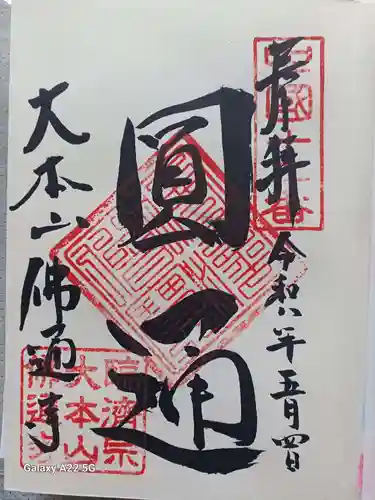 奉拝
令和八年五月四日
圓通
大本山佛通寺
臨済宗
大本山
佛通寺
Galaxy A22 5G